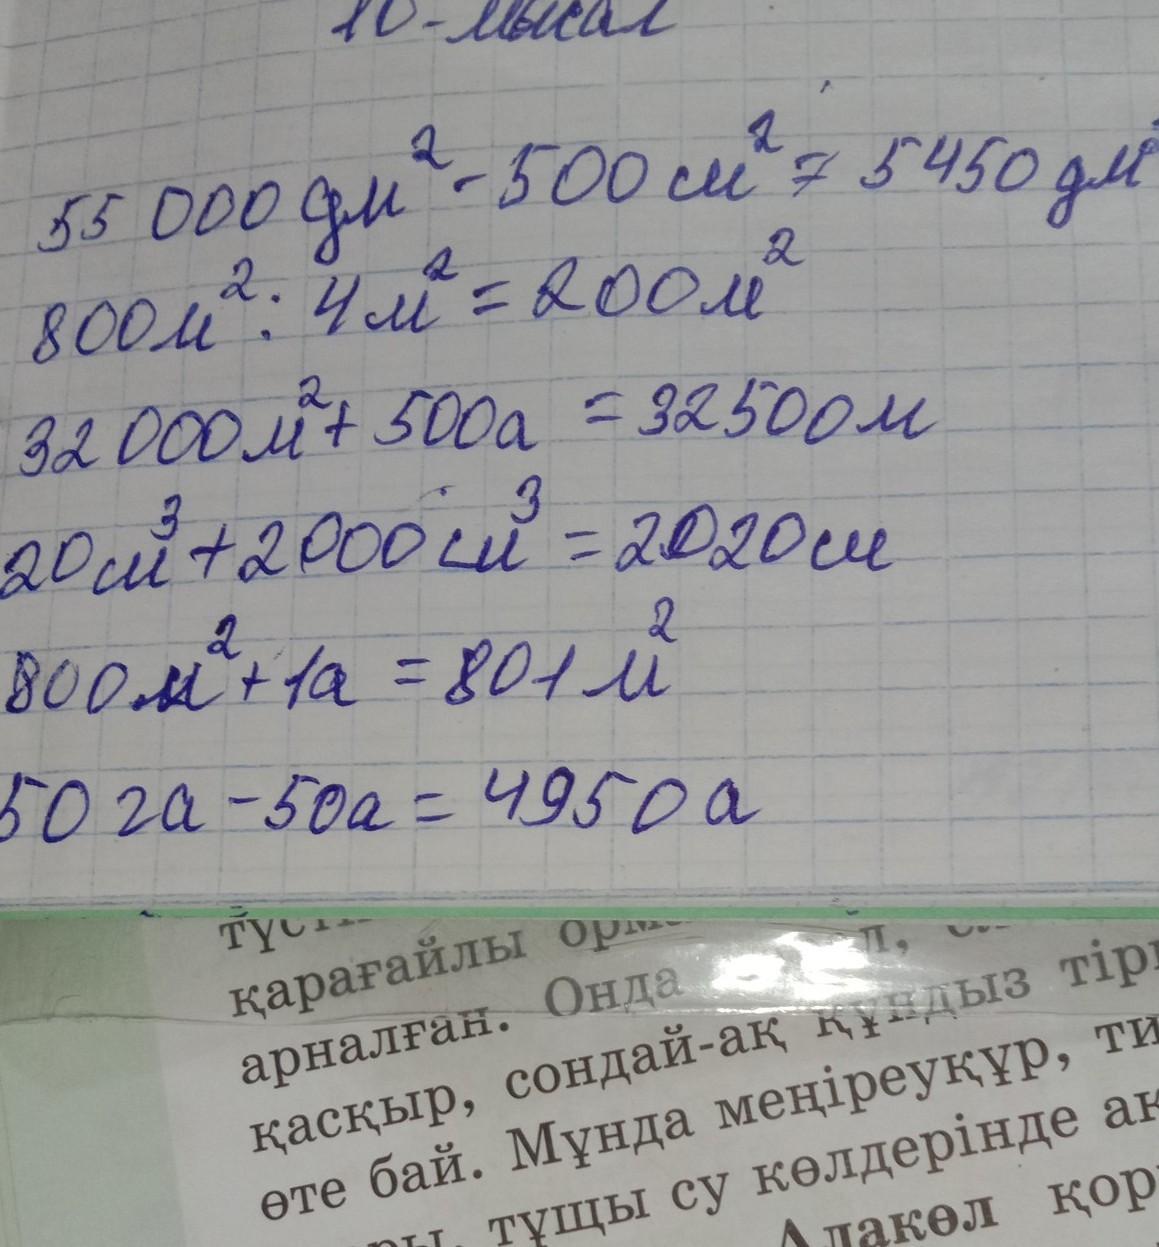 10-мысал
55 000 дм² - 500 см² = 5450 дм²
800м² : 4м² = 200м²
32 000м² + 500а = 32500м
20см³ + 2000см³ = 2020см
800м² + 1а = 801м²
50га - 50а = 4950а
қарағайлы
арналған. Онда
қасқыр, сондай-ақ құндыз
өте бай. Мұнда меңіреуқұр,
тұщы су көлдерінде
Алакөл